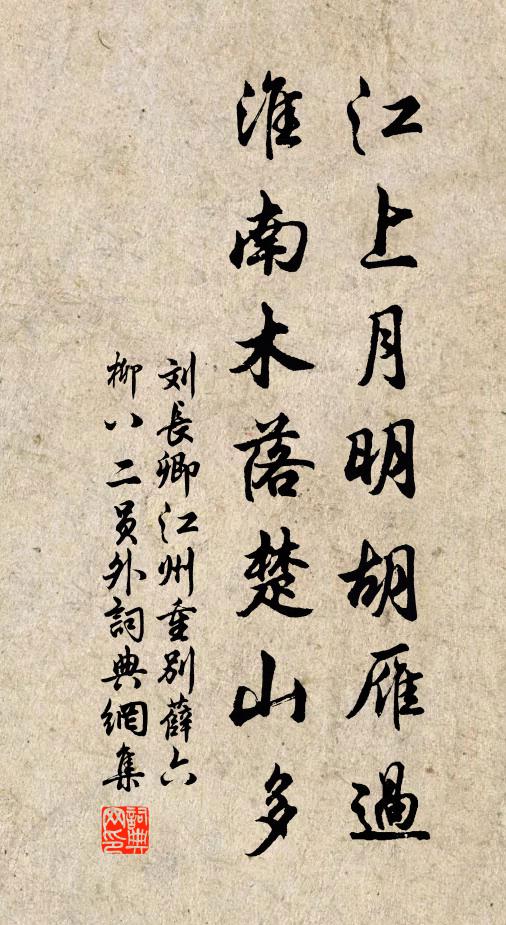 江上月明胡雁過
淮南木落楚山多
刘長卿江州重别薛六
柳八二员外詞典網集
詞典
网印